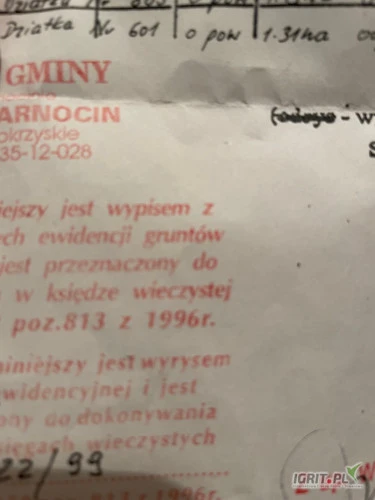 Działka Nr 601 o pow 1.31ha
GMINY
ARNOCIN
okrzyskie
35-12-028
iejszy jest wypisem z
ech ewidencji gruntów
jest przeznaczony do
w księdze wieczystej
poz.813 z 1996r.
niniejszy jest wyrysem
widencyjnej i jest
ony do dokonywania
sięgach wieczystych
22/99
z 1996r.
IGRIT.PL